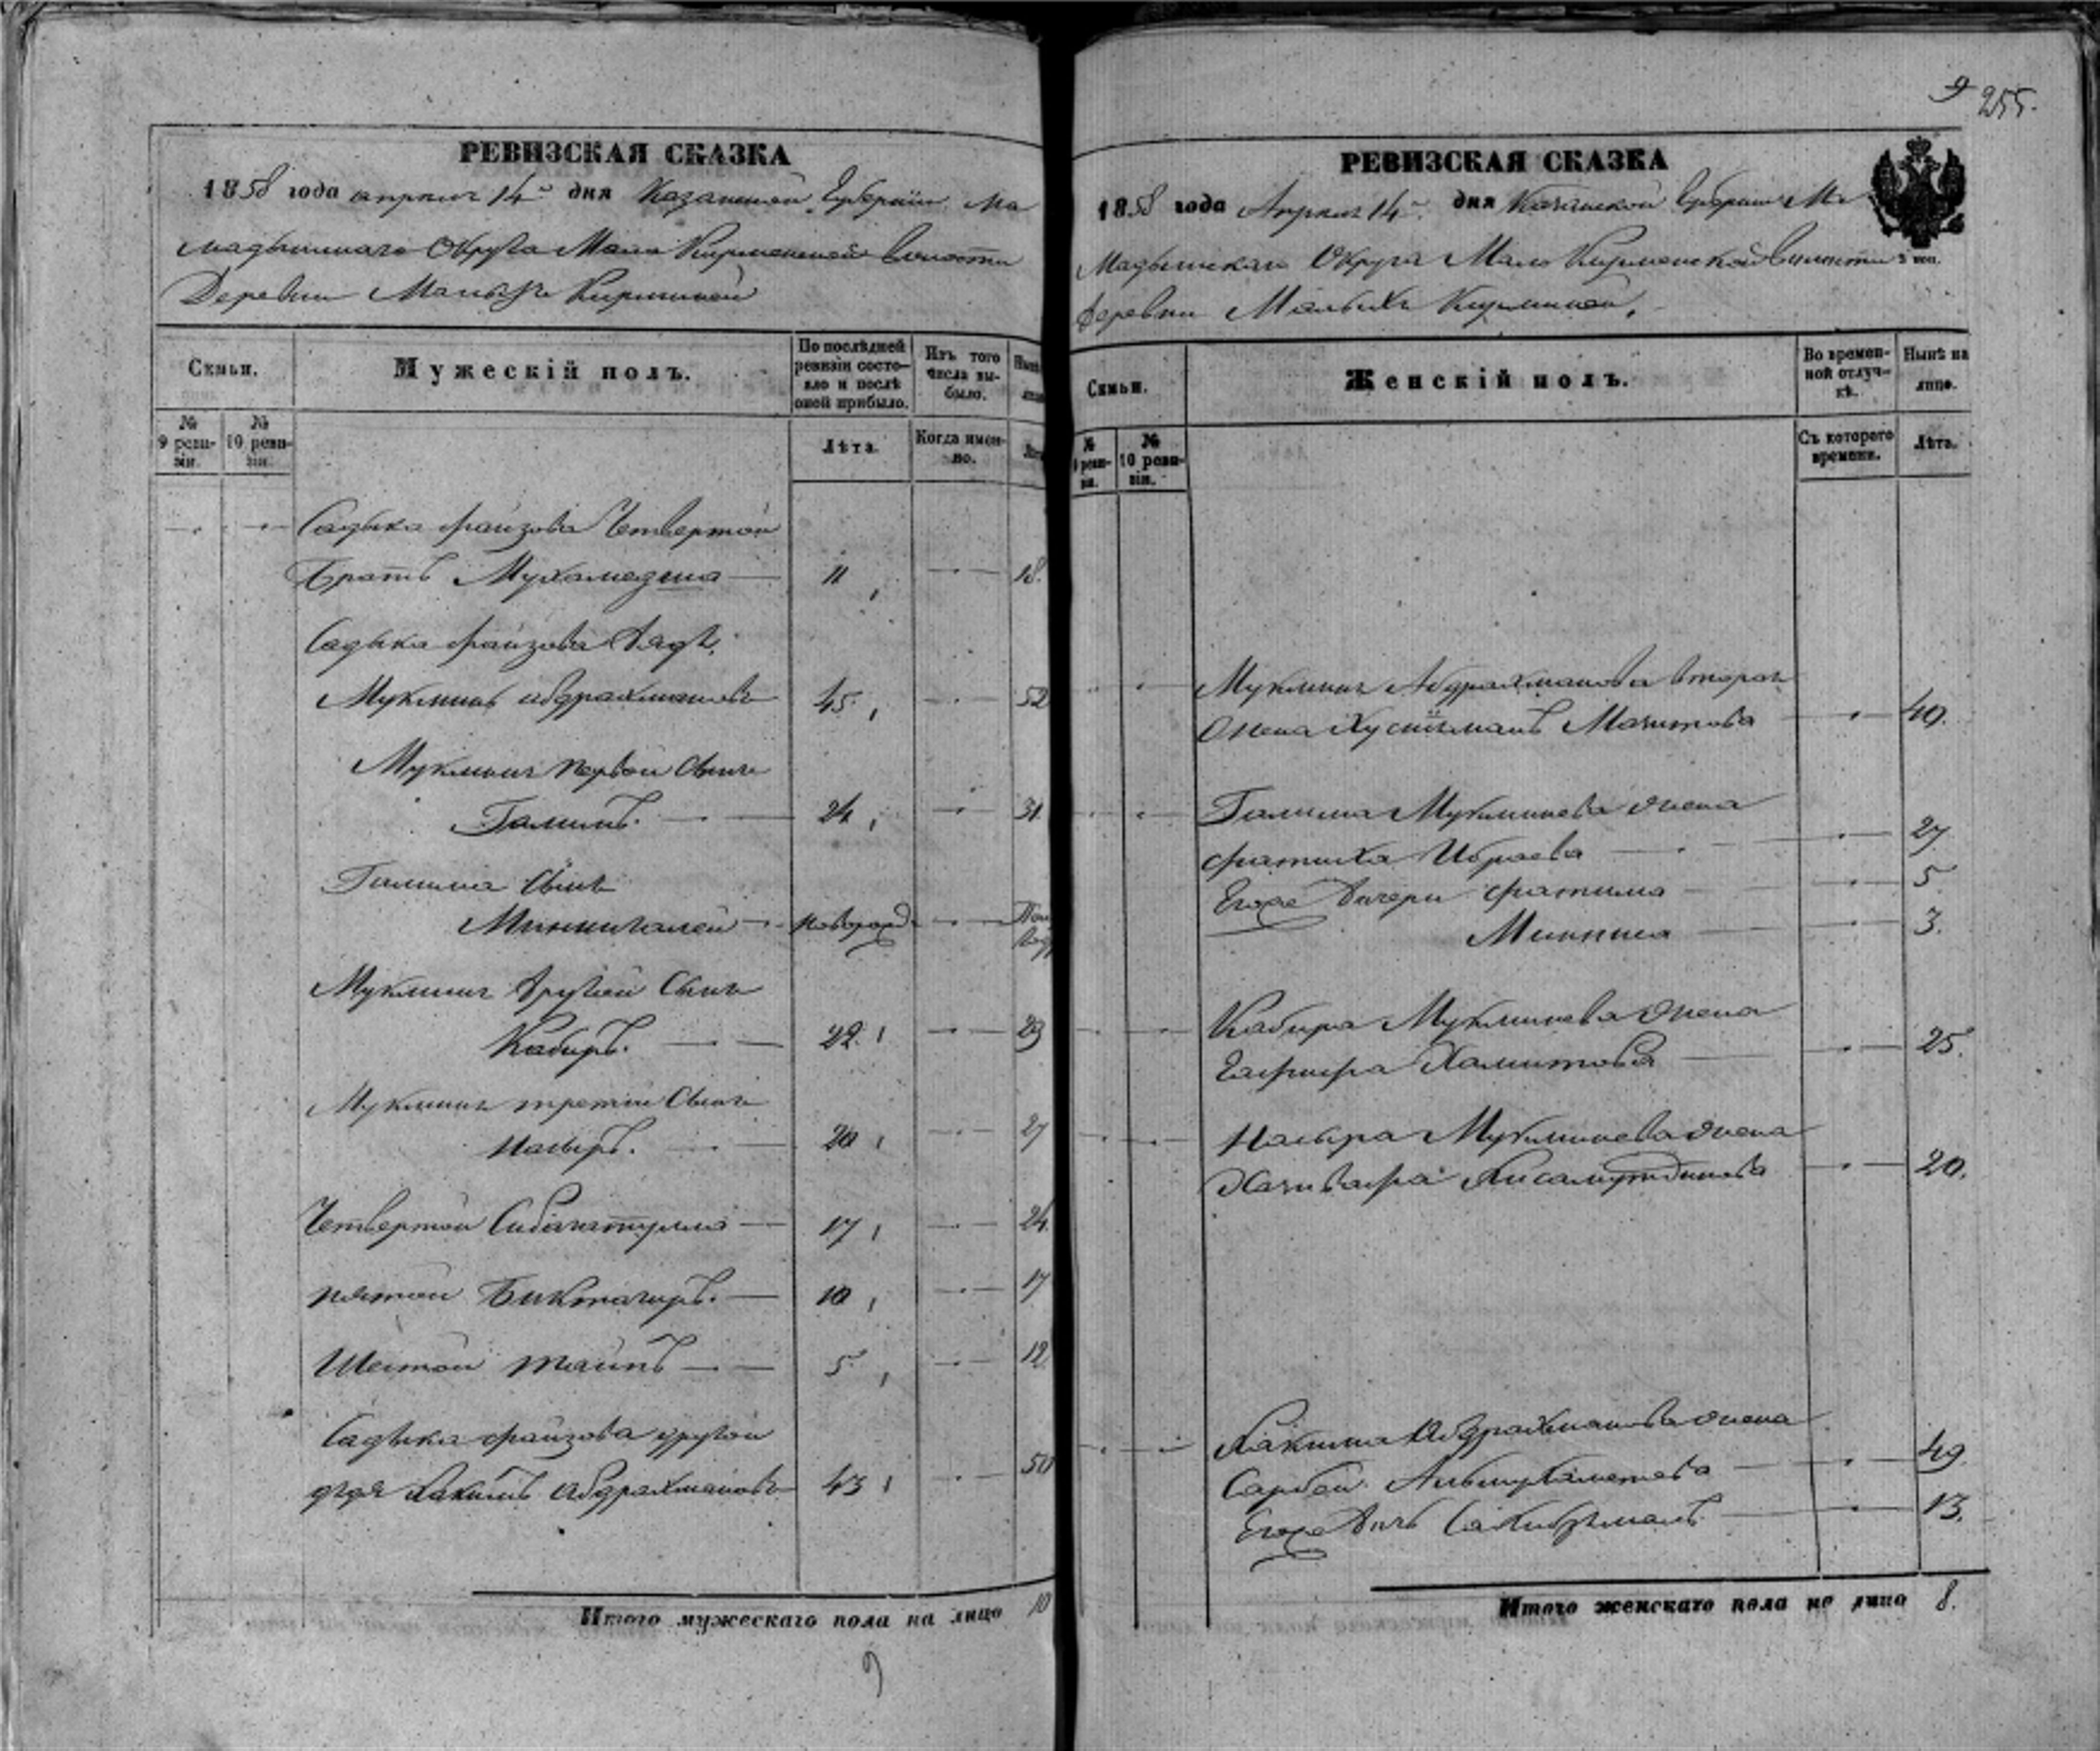 РЕВИЗСКАЯ СКАЗКА
1858 года апреля 14го дня Казанской Губернiи Ма
мадышскаго Округа Мало Кирменской волости
Деревни Малыхъ Кирменей
Семьи.
Мужескiй полъ.
По послѣдней
ревизiи состо-
яло и послѣ
оной прибыло.
Изъ того
числа вы-
было.
№
9 реви-
зiи.
№
10 реви-
зiи.
Лѣта.
Когда имен-
но.
Садыка Файзова Четвертой
Братъ Мухамедша 11 18.
Садыка Файзова дядя,
Мукминъ Абдрахмановъ 45 52
Мукмина первой Сынъ
Галимъ. 24 31
Галима Сынъ
Миннигалей новорожд
Мукмина другой Сынъ
Кабиръ. 22 29
Мукмина третiй Сынъ
Насыръ. 20 27
Четвертой 17 24
пятой Биктагиръ. 10 17
Шестой Таипъ 5 12
Садыка Файзова другой
дядя Хакимъ Абдрахмановъ 43 50
Итого мужескаго пола на лицо 10
9
9 255.
РЕВИЗСКАЯ СКАЗКА
1858 года Апреля 14го дня Казанской Губернiи Ма
мадышскаго Округа Мало Кирменской волости
Деревни Малыхъ Кирменей.
3 коп.
Семьи.
Женскiй полъ.
Во времен-
ной отлуч-
кѣ.
Нынѣ на
лицо.
№
9 реви-
зiи.
№
10 реви-
зiи.
Съ котораго
времени.
Лѣта.
Мукмина Абдрахманова вторая
жена 40.
Галима Мукминева жена
Фатиха Ибраева 27
Егоже дочери Фатима 5
Минниса 3.
Кабира Мукминева жена
Гафифа Хамитова 25.
Насыра Мукминева жена
20.
Хакима Абдрахманова жена
49
Егоже дочь 13.
Итого женскаго пола на лицо 8.